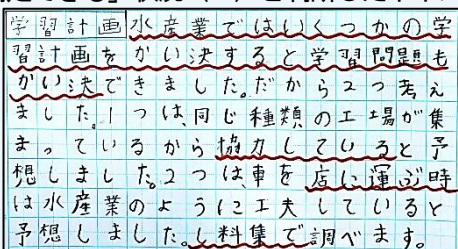 学習計画水産業ではいくつかの学
習計画をかい決すると学習問題も
かい決できました。だから2つ考え
ました。1つは、同じ種類の工場が集
まっているから協力していると予
想しました。2つは、車を店に運ぶ時
は水産業のように工夫していると
予想しました。し料集で調べます。